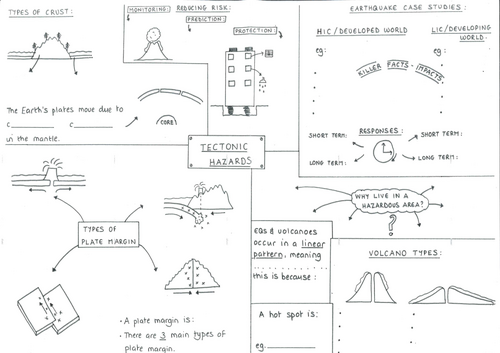 TYPES OF CRUST:
The Earth's plates move due to
c________ c________
in the mantle.
CORE
MONITORING:
REDUCING RISK:
PREDICTION:
PROTECTION:
EARTHQUAKE CASE STUDIES:
HIC/DEVELOPED WORLD
LIC/DEVELOPING WORLD.
eg:
eg:
KILLER FACTS - IMPACTS
RESPONSES:
SHORT TERM:
SHORT TERM:
LONG TERM:
LONG TERM:
TECTONIC
HAZARDS
TYPES OF
PLATE MARGIN
• A plate margin is:
• There are 3 main types of
plate margin.
EQs & volcanoes
occur in a linear
pattern, meaning
..........
this is because:
A hot spot is:
eg.________
WHY LIVE IN A
HAZARDOUS AREA?
?
VOLCANO TYPES: